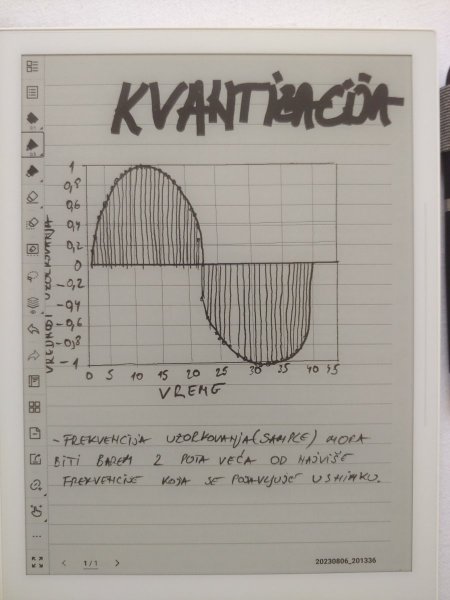 KVANTIZACIJA
VREDNOSTI UZORKOVANJA
1
0,8
0,6
0,4
0,2
0
-0,2
-0,4
-0,6
-0,8
-1
0 5 10 15 20 25 30 35 40 45
VREME
- FREKVENCIJA UZORKOVANJA (SAMPLE) MORA
BITI BAREM 2 PUTA VEĆA OD NAJVIŠE
FREKVENCIJE KOJA SE POJAVLJUJE U SNIMKU.
1/1
20230806_201336